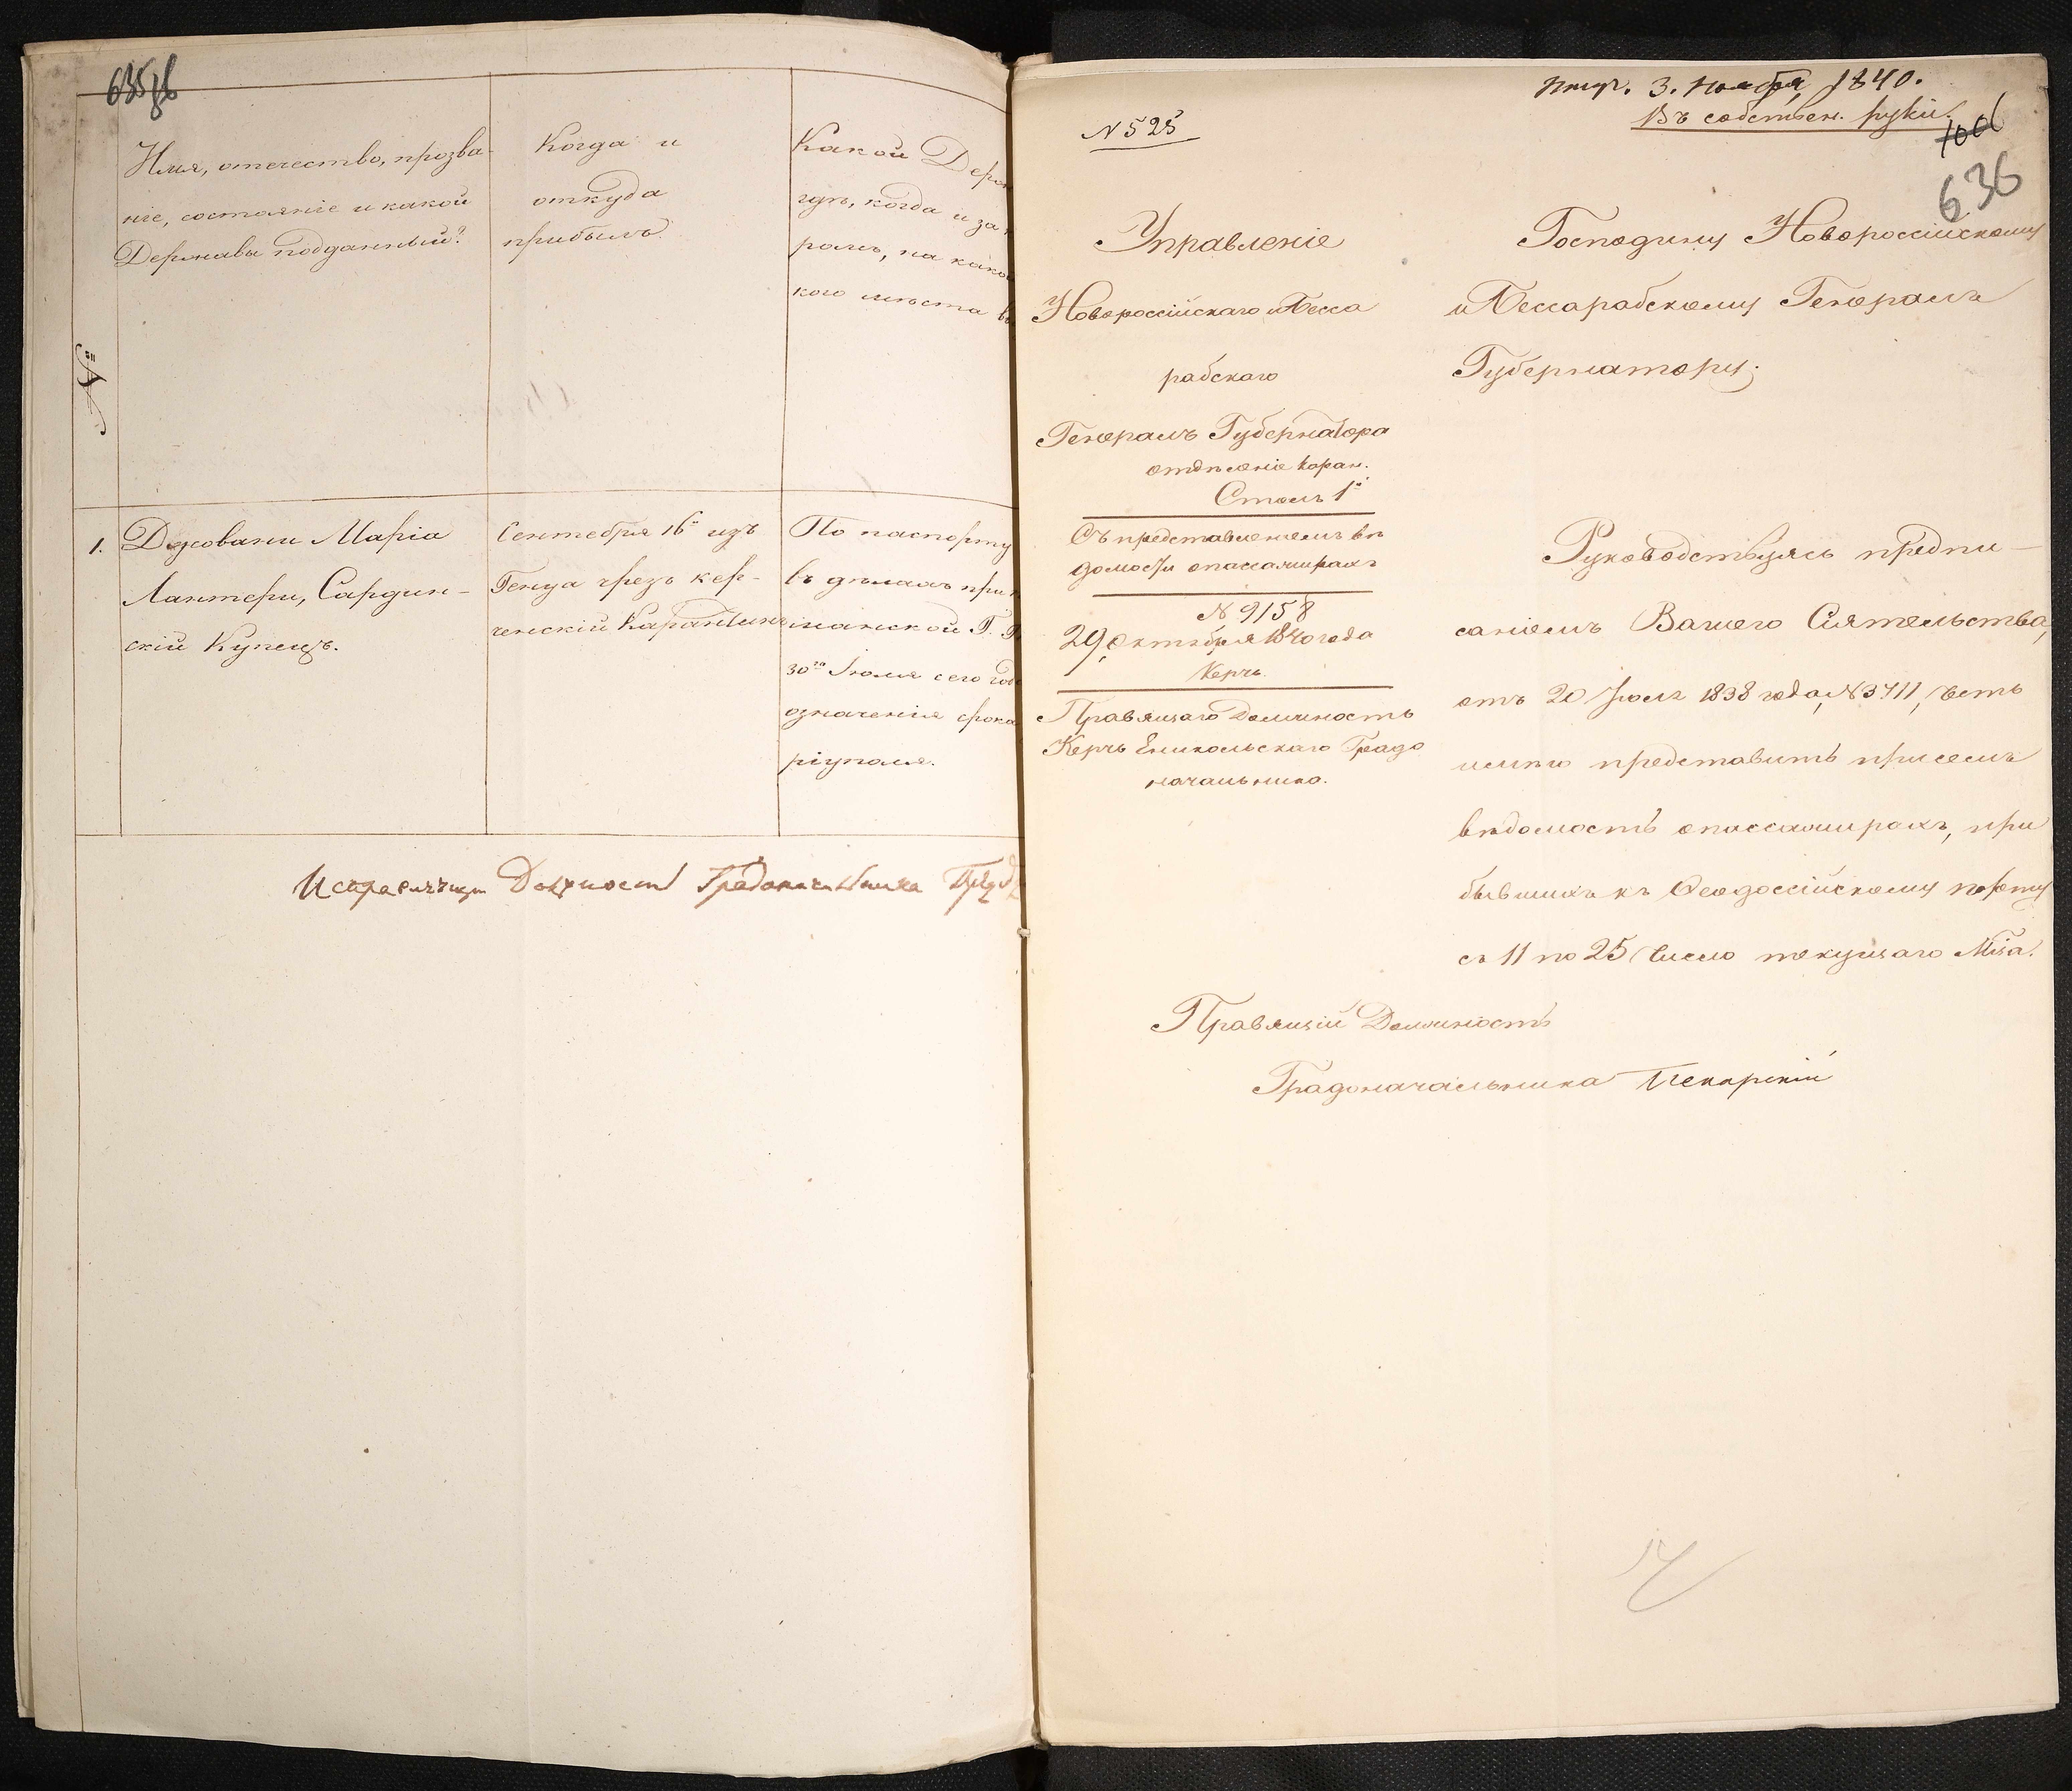 635 об
№
Имя, отечество, прозва-
ніе, состояніе и какой
Державы подданный?
Когда и
откуда
прибылъ.
Какой Держ
гдѣ, когда и за
ромъ, на како
кого мѣста в
1.
Джовани Маріа
Лантери, Сардин-
скій Купецъ.
Сентября 16го изъ
Генуа чрезъ Кер-
ченскій Карантинъ
По паспорту
въ дѣлахъ при
іманской Г. Г
30го Іюля сего год
означенія срока
ріуполя.
Должност Градоначальника
№ 525
3. Ноября 1840.
Въ собствен. руки.
636
Управленіе
Новороссійскаго и Бесса
рабскаго
Генералъ Губернатора
отдѣленіе Каран.
Столъ 1й
Съ представленіемъ вѣ
домости опассажирахъ
№ 9158
29 Октября 1840 года
Керчь.
Правящаго Должность
Керчь Еникольскаго Градо
начальника.
Господину Новороссійскому
и Бессарабскому Генералъ
Губернатору.
Руководствуясь предпи-
саніемъ Вашего Сіятельства,
отъ 20 Іюля 1838 года, № 3711, честь
имѣю представить присемъ
вѣдомость опассажирахъ, при
бывшихъ къ Ѳеодоссійскому порту
съ 11 по 25 число текущаго Мца.
Правящій Должность
Градоначальника Пекарскій